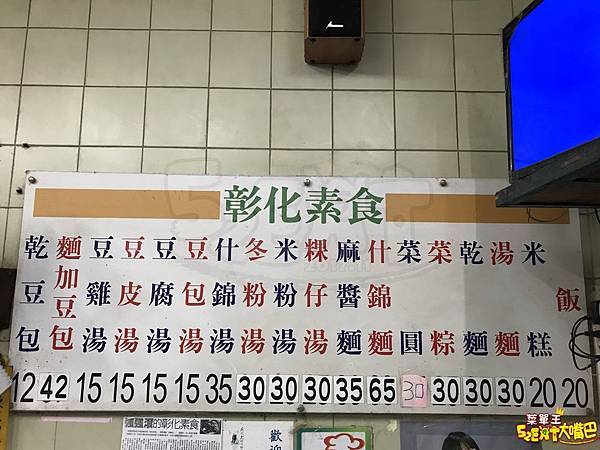 彰化素食
乾豆包 12
麵加豆包 42
豆雞湯 15
豆皮湯 15
豆腐湯 15
豆包湯 15
什錦湯 35
冬粉湯 30
米粉湯 30
粿仔湯 30
麻醬麵 35
什錦麵 65
菜圓 30
菜粽 30
乾麵 30
湯麵 30
米糕 20
飯 20
的彰化素食
歡
菜單王
528EAT大嘴巴